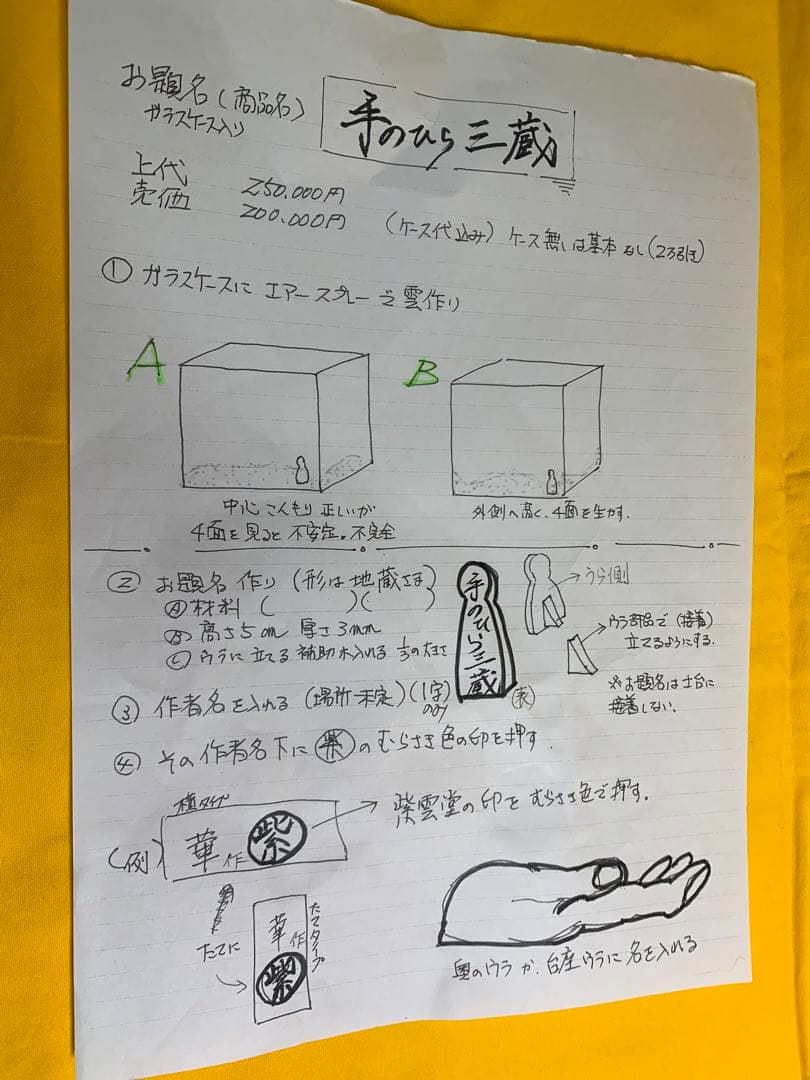 お題名(商品名)
ガラスケース入り
手のひら三蔵
上代 250.000円
売価 200.000円 (ケース代込み) ケース無しは基本なし(2万引き)
① ガラスケースに エアースプレーで雲作り
A
B
中心 こんもり 正しいが
4面を見ると 不安定。不完全
外側へ高く、4面を生かす。
② お題名 作り (形は 地蔵さま)
Ⓐ 材料 ( )( )
Ⓑ 高さ5cm 厚さ3mm
Ⓒ ウラに立てる 補助木入れる 1/3の大きさ
手のひら三蔵
表
うら側
ウラ部品で(接着)
立てるようにする。
※お題名は土台に
接着しない。
③ 作者名を入れる (場所未定)(1字)
のみ
④ その作者名下に 紫 のむらさき色の印を押す.
横タイプ
(例)
華 作 紫
紫雲堂の印を むらさき色で押す。
たてに
たてタイプ
華 作
紫
奥のウラか、台座ウラに名を入れる